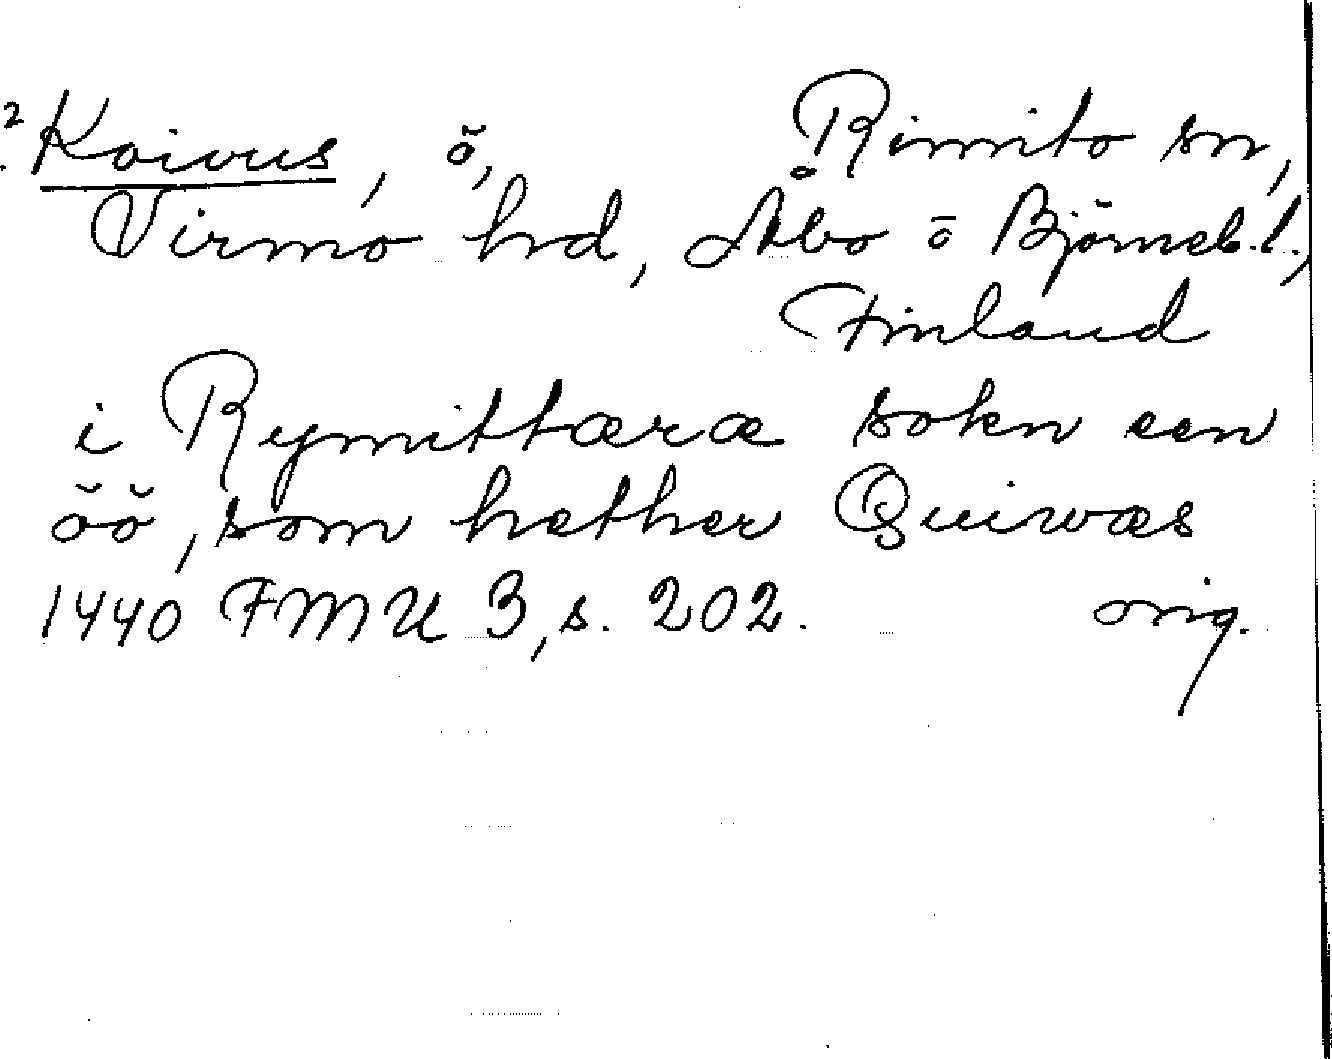 2 Koivus, ö, Rimito sn,
Virmo hd, Åbo o Björneb. l.,
Finland
i Rymittæræ sokn een
öö, som hether Quiwæs
1440 FMU 3, s. 202. orig.